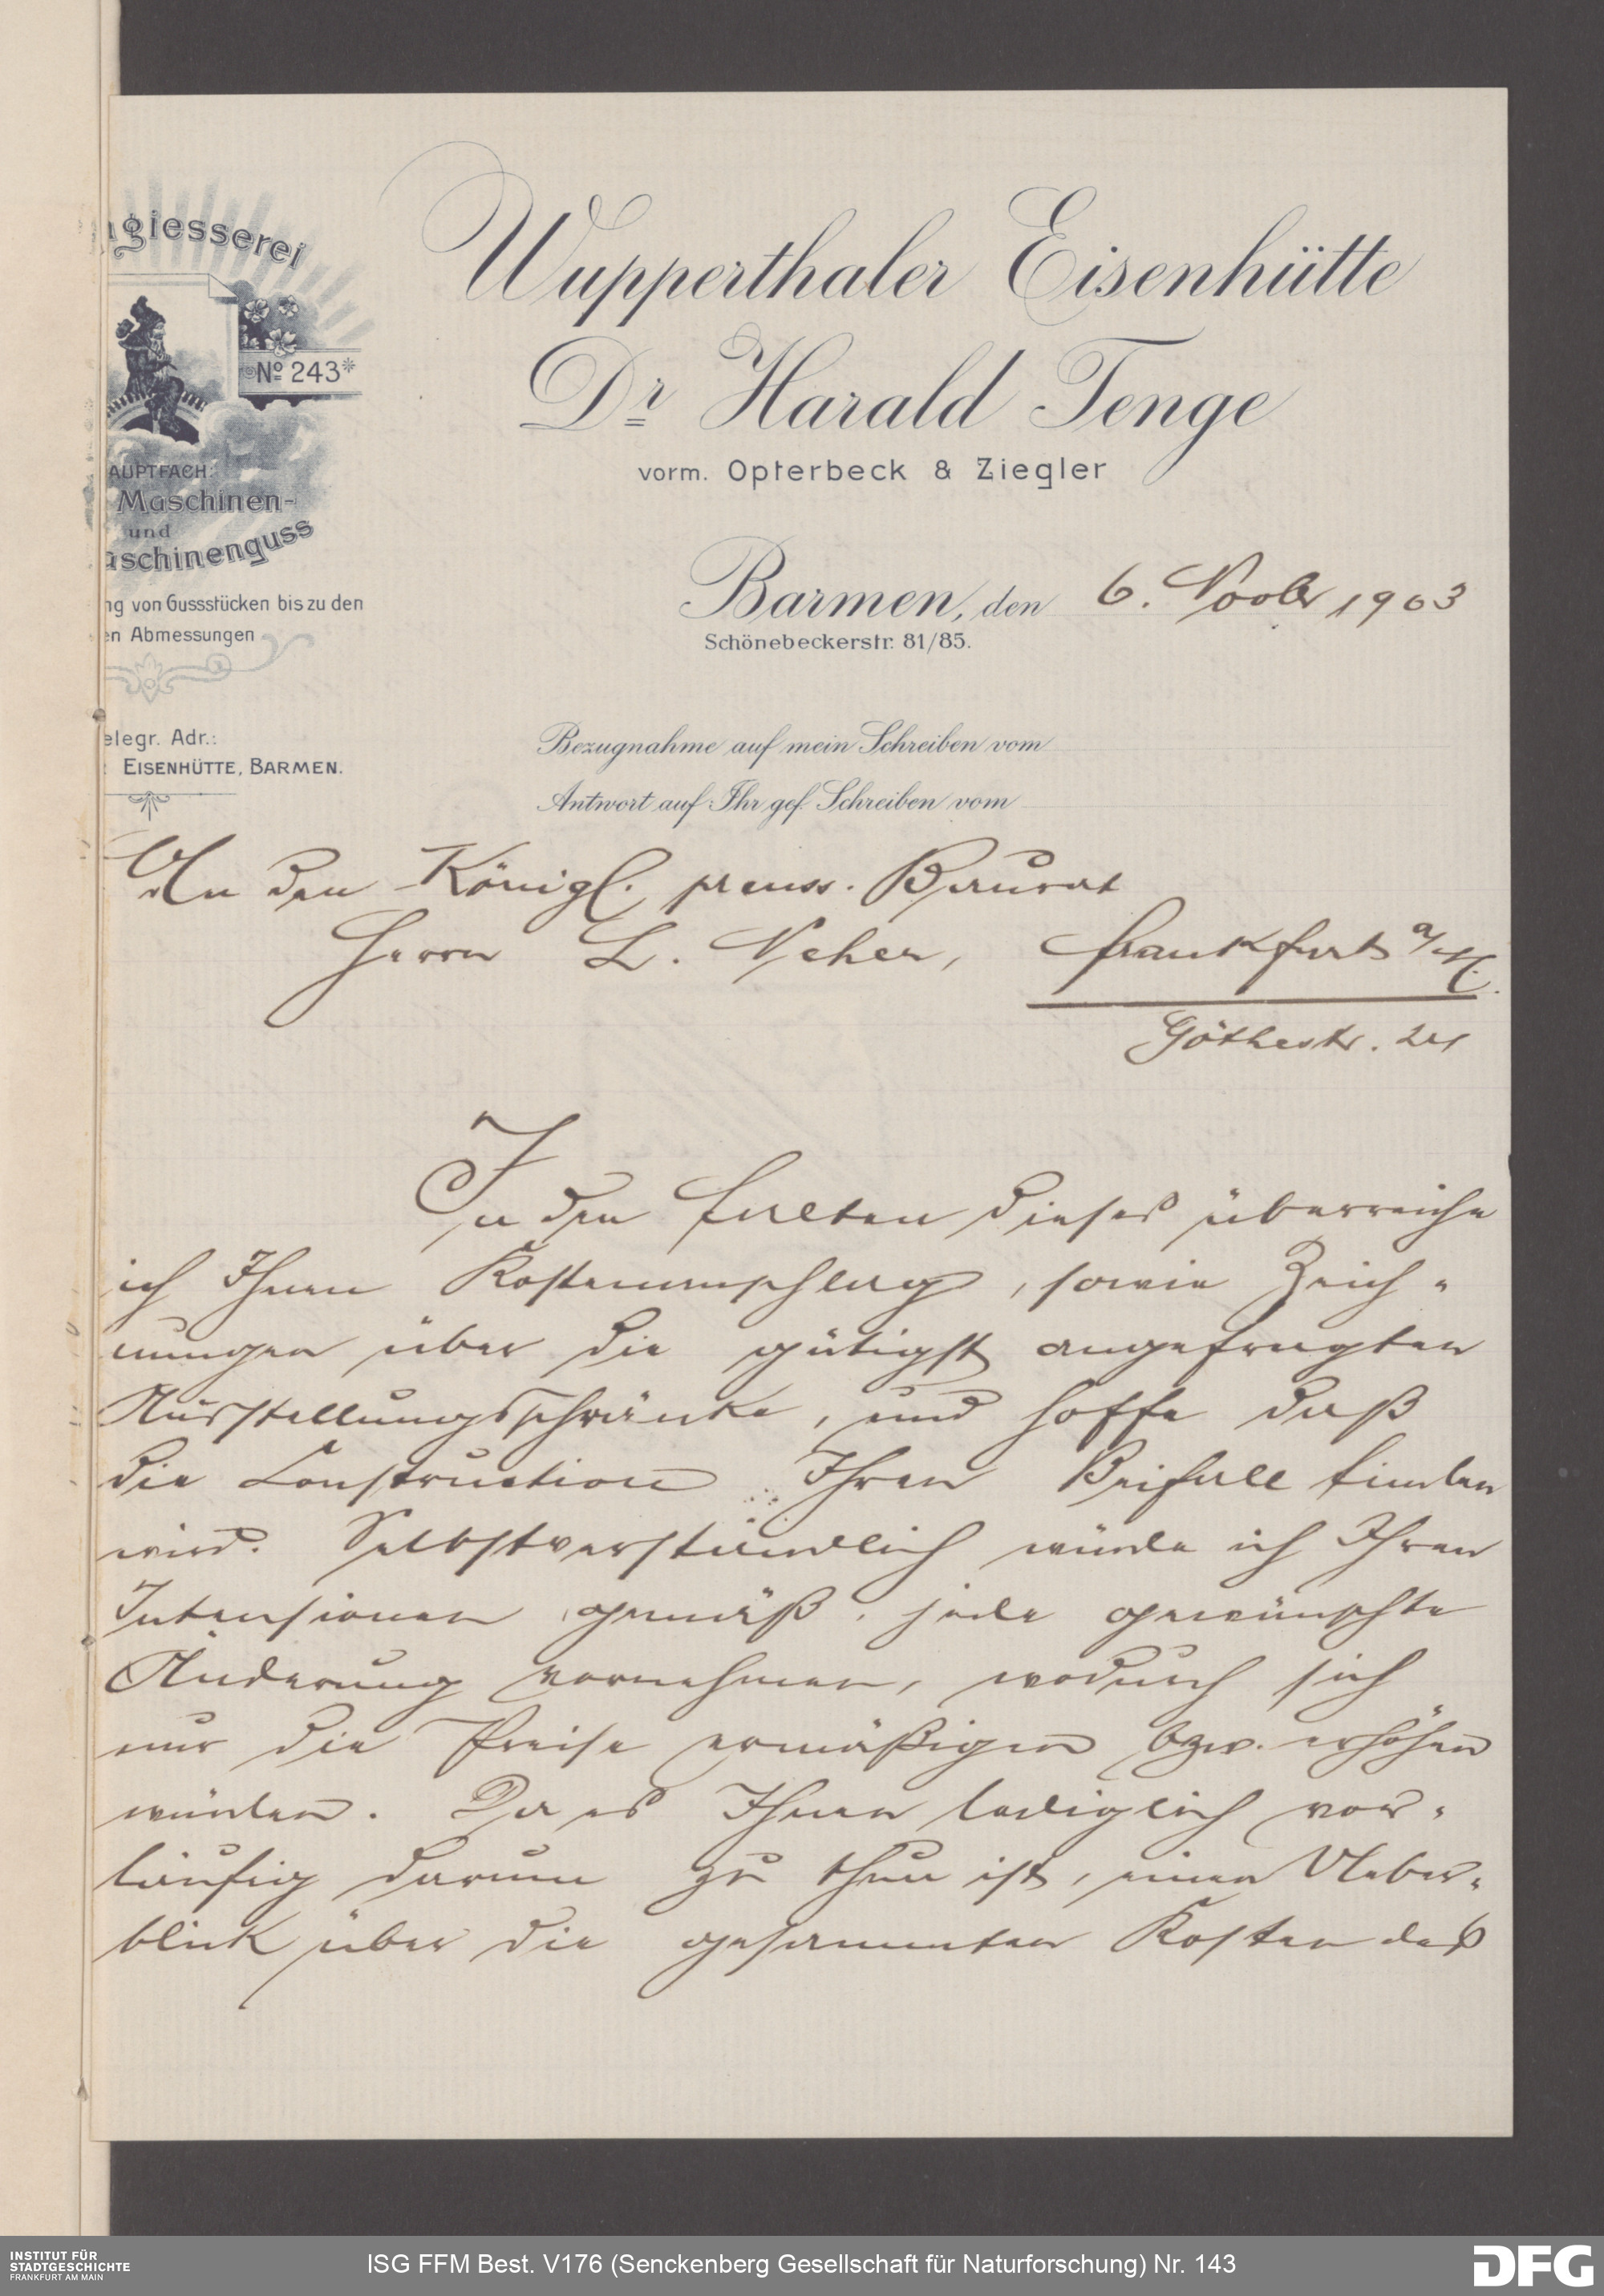 giesserei
No 243*
AUPTFACH:
Maschinen-
und
aschinenguss
ng von Gussstücken bis zu den
en Abmessungen
elegr. Adr.:
EISENHÜTTE, BARMEN.
Wupperthaler Eisenhütte
Dr Harald Tenge
vorm. Opterbeck & Ziegler
Barmen, den 6. Novbr 1903
Schönebeckerstr. 81/85.
Bezugnahme auf mein Schreiben vom
Antwort auf Ihr gef. Schreiben vom
An den Königl. preuss. Baurat
Herrn L. Neher, Frankfurt a/M.
Göthestr. 21
In den Falten dieses überreiche
ich Ihnen Kostenanschlag, sowie Zeich-
nungen über die gütigst angefragten
Ausstellungsschränke, und hoffe daß
die Construction Ihren Beifall finden
wird. Selbstverständlich würde ich Ihren
Intensionen gemäß jede gewünschte
Änderung vornehmen, wodurch sich
nur die Preise ermäßigen bzw. erhöhen
würden. Da es Ihnen lediglich vor-
läufig darum zu thun ist, einen Ueber-
blick über die gesammten Kosten des
INSTITUT FÜR
STADTGESCHICHTE
FRANKFURT AM MAIN
ISG FFM Best. V176 (Senckenberg Gesellschaft für Naturforschung) Nr. 143
DFG